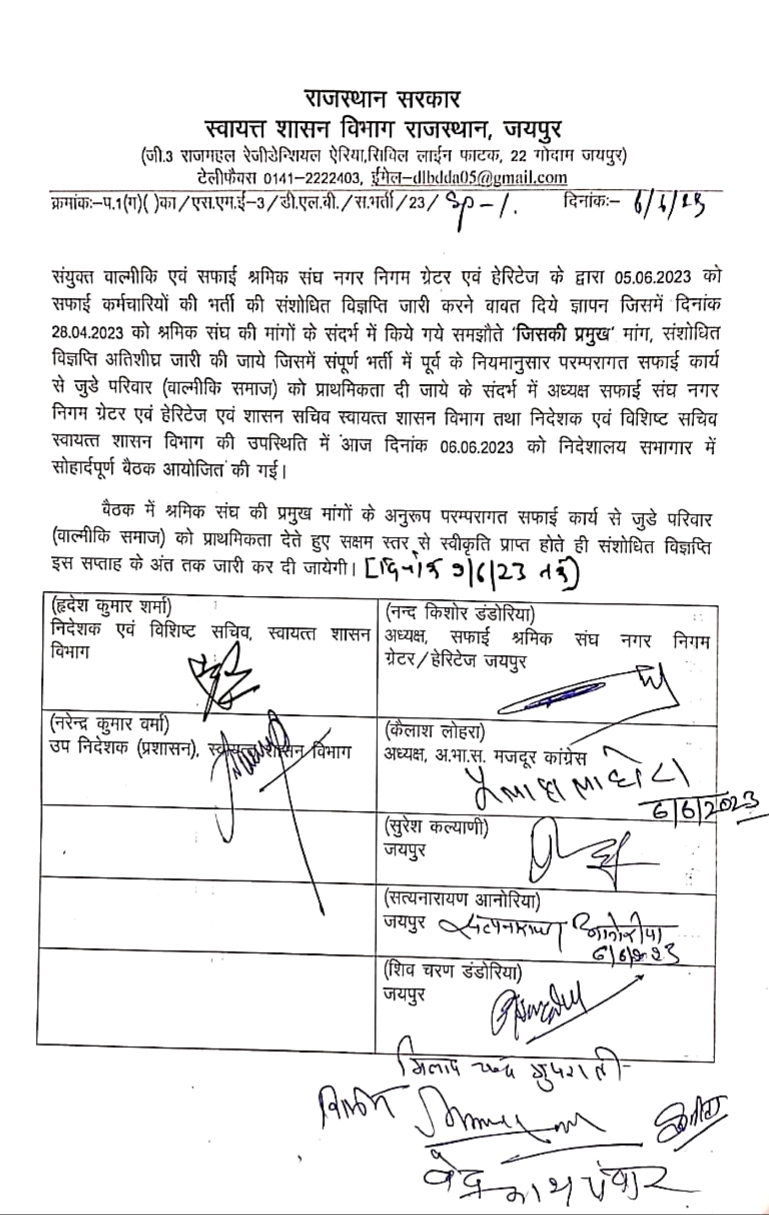 राजस्थान सरकार
स्वायत्त शासन विभाग राजस्थान, जयपुर
(जी.3 राजमहल रेजीडेन्शियल ऐरिया,सिविल लाईन फाटक, 22 गोदाम जयपुर)
टेलीफैक्स 0141–2222403, ईमेल–dlbdda05@gmail.com
क्रमांकः–प.1(ग)( )का/एस.एम.ई–3/डी.एल.बी./स.भर्ती/23/ Sp-1. दिनांकः– 6/6/23
संयुक्त वाल्मीकि एवं सफाई श्रमिक संघ नगर निगम ग्रेटर एवं हेरिटेज के द्वारा 05.06.2023 को
सफाई कर्मचारियों की भर्ती की संशोधित विज्ञप्ति जारी करने वावत दिये ज्ञापन जिसमें दिनांक
28.04.2023 को श्रमिक संघ की मांगों के संदर्भ में किये गये समझौते 'जिसकी प्रमुख' मांग, संशोधित
विज्ञप्ति अतिशीघ्र जारी की जाये जिसमें संपूर्ण भर्ती में पूर्व के नियमानुसार परम्परागत सफाई कार्य
से जुडे परिवार (वाल्मीकि समाज) को प्राथमिकता दी जाये के संदर्भ में अध्यक्ष सफाई संघ नगर
निगम ग्रेटर एवं हेरिटेज एवं शासन सचिव स्वायत्त शासन विभाग तथा निदेशक एवं विशिष्ट सचिव
स्वायत्त शासन विभाग की उपस्थिति में आज दिनांक 06.06.2023 को निदेशालय सभागार में
सोहार्दपूर्ण बैठक आयोजित की गई।
बैठक में श्रमिक संघ की प्रमुख मांगों के अनुरूप परम्परागत सफाई कार्य से जुडे परिवार
(वाल्मीकि समाज) को प्राथमिकता देते हुए सक्षम स्तर से स्वीकृति प्राप्त होते ही संशोधित विज्ञप्ति
इस सप्ताह के अंत तक जारी कर दी जायेगी। [दिनांक 9/6/23 तक]
(हृदेश कुमार शर्मा)
निदेशक एवं विशिष्ट सचिव, स्वायत्त शासन
विभाग
(नन्द किशोर डंडोरिया)
अध्यक्ष, सफाई श्रमिक संघ नगर निगम
ग्रेटर/हेरिटेज जयपुर
(नरेन्द्र कुमार वर्मा)
उप निदेशक (प्रशासन), स्वायत्त शासन विभाग
(कैलाश लोहरा)
अध्यक्ष, अ.भा.स. मजदूर कांग्रेस
6/6/2023
(सुरेश कल्याणी)
जयपुर
(सत्यनारायण आनोरिया)
जयपुर सत्यनारायण आनोरीया
6/6/2023
(शिव चरण डंडोरिया)
जयपुर